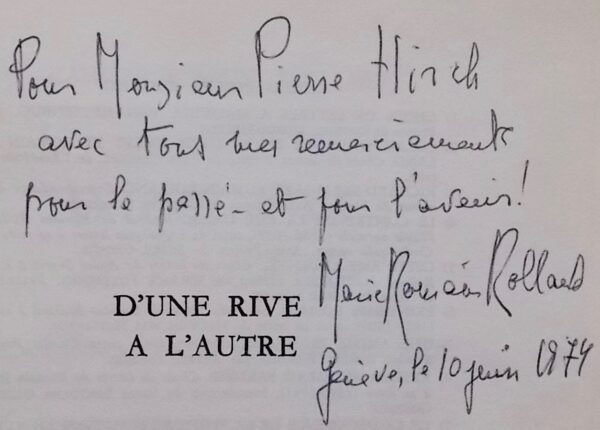 Pour Monsieur Pierre Hirsch
avec tous mes remerciements
pour le passé – et pour l'avenir!
Marie Romain Rolland
D'UNE RIVE
A L'AUTRE
Genève, le 10 juin 1974